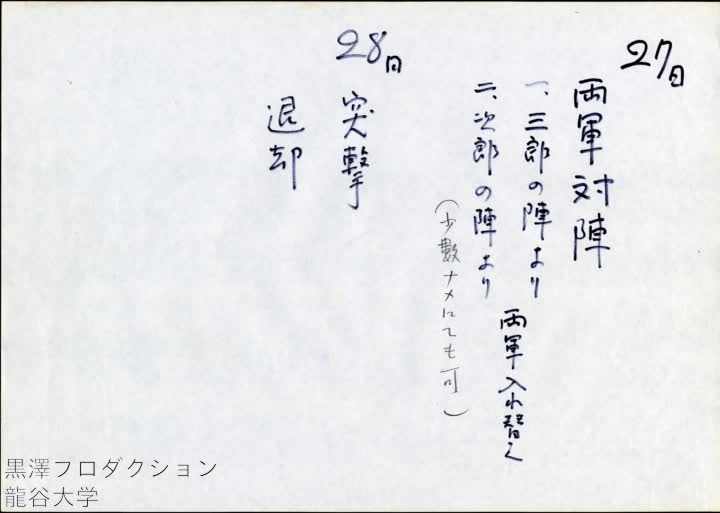 27日
両軍対陣
一、三郎の陣より
二、次郎の陣より
両軍入れ替え
（少数ナメにても可）
28日
突撃
退却
黒澤プロダクション
龍谷大学